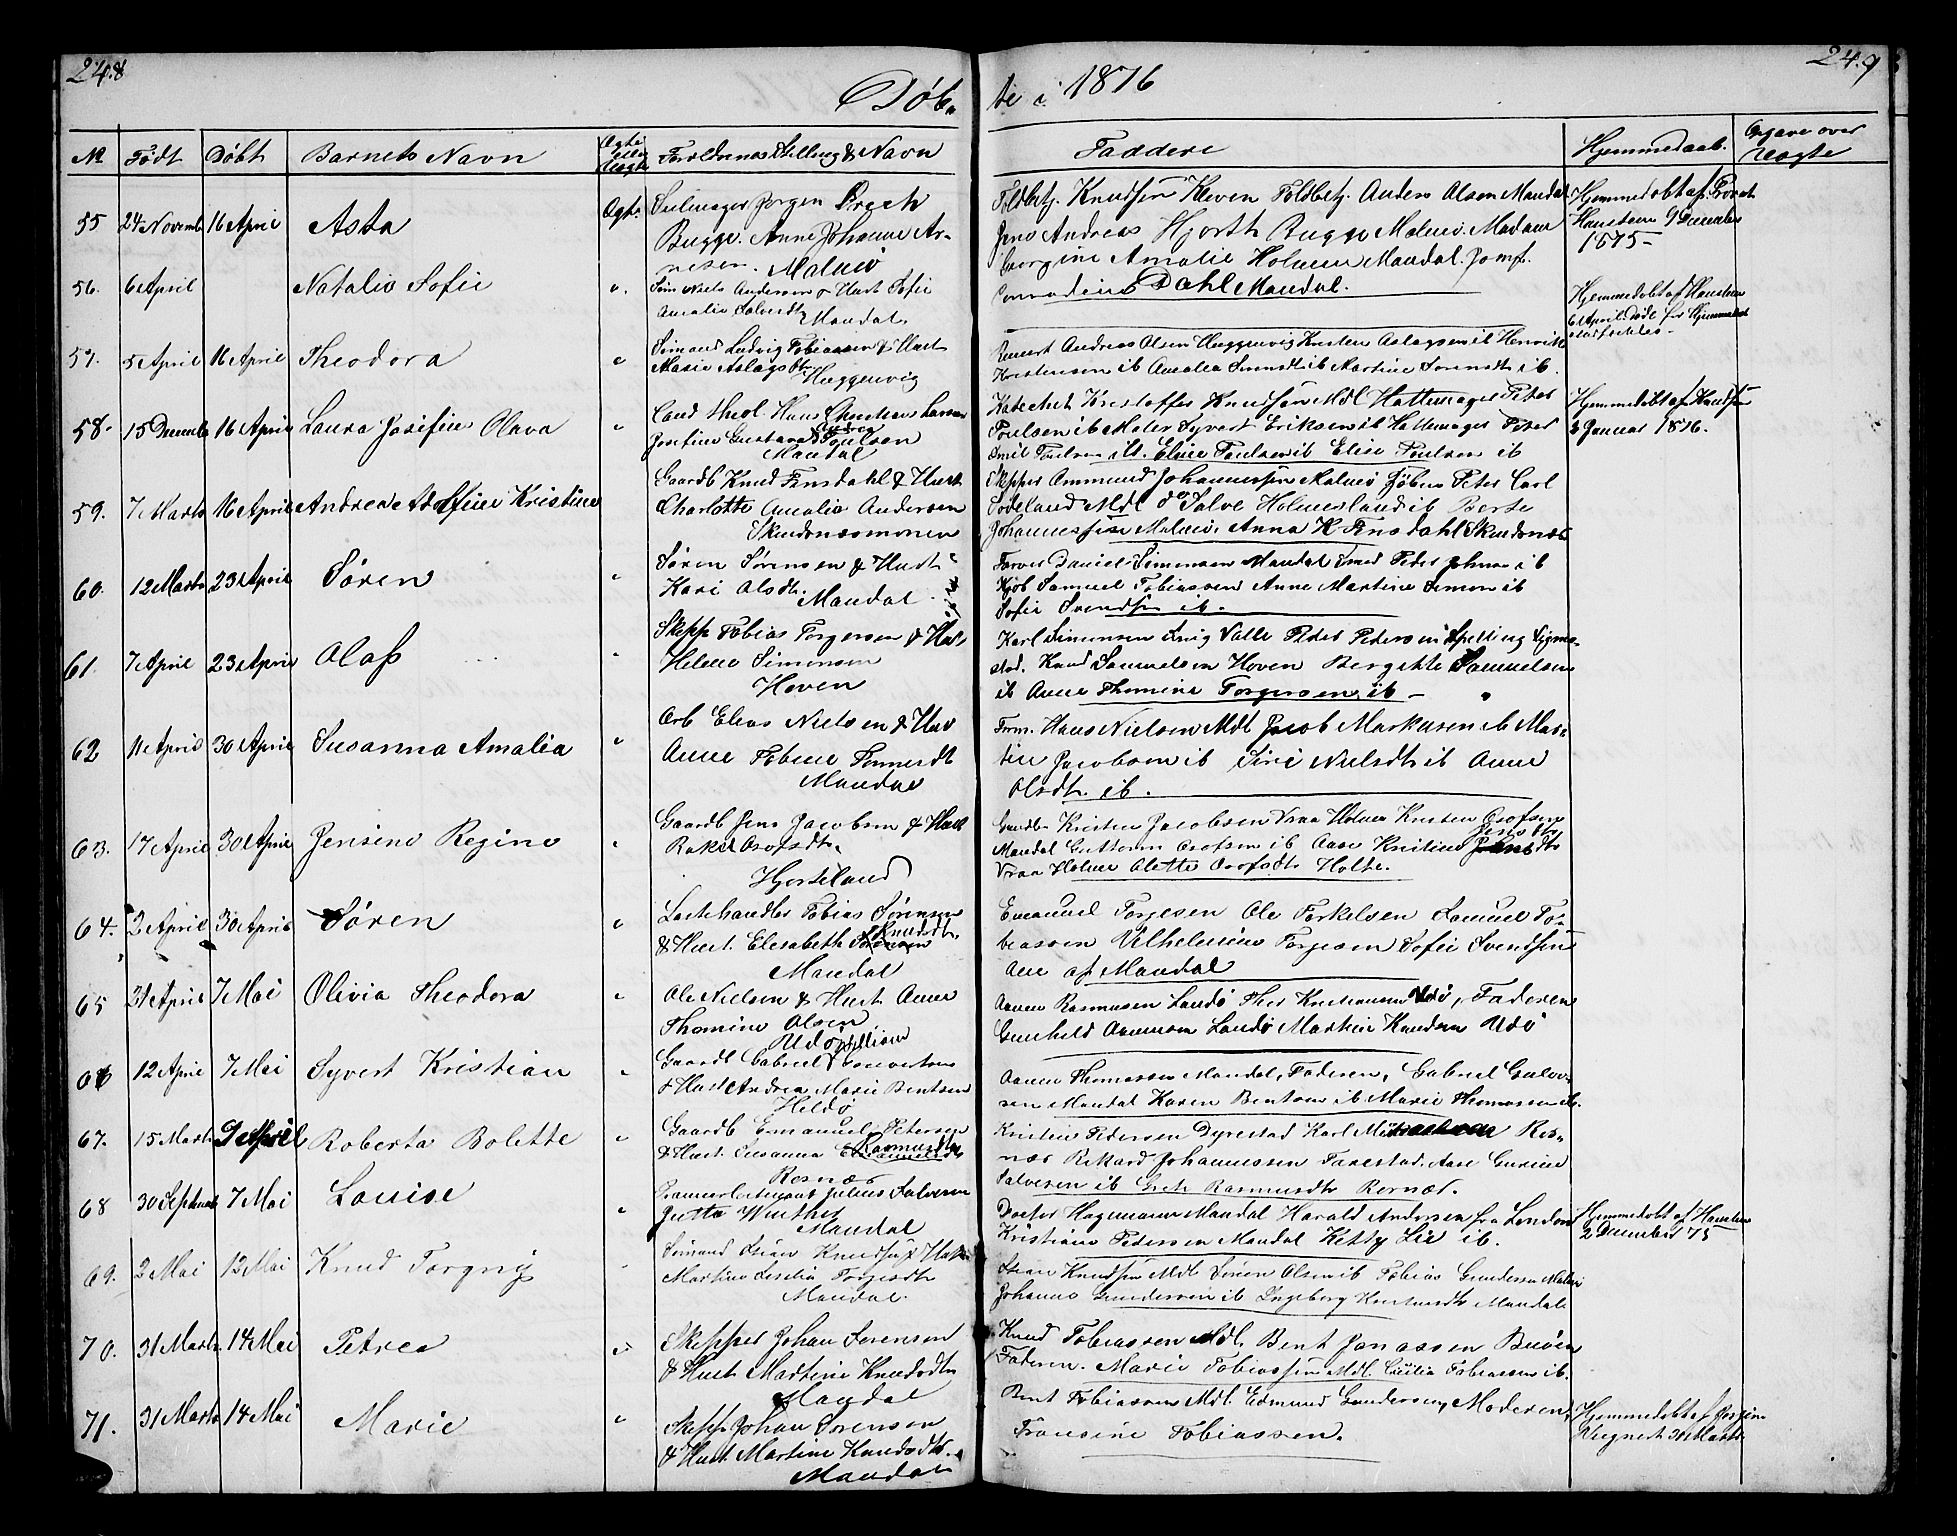 248
249
Døb- te i 1876
No Født Døbt Barnets Navn Ægte eller Uægte Forældrenes Stilling & Navn Faddere Hjemmedaab. Opgave over Uægte
55 24 Novemb 16 April Asta Ægte Seilmager Jørgen Brech
Bugge. Anne Johanne Ar-
nesen. Malmø
Toldbetj. Knudsen Kleven Toldbetj. Anders Olsen Mandal
Jens Andreas Hjorth Bugge Malmø. Madam
Georgine Amalie Holmen Mandal. Jomf.
Conradine Dahl Mandal.
Hjemmedøbt af Provst
Hansteen 9 December
1875-
56. 6 April Natalie Sofie
Niels Andersen & Hust Sofie
Amalie Salvesdtr
Mandal.
Hjemmedøbt af Hansteen
6 April Død før Hjemmed
stadfæstes-
57. 5 April 16 April Theodora
Simand Ludvig Tobiassen & Hust
Marie Aslagsdtr
Huggenvig
Andreas Olsen Huggenvig Kristen Aslagsen ib Henrik
Kristensen ib Amalia Svendsdt ib Martine Svendsdt ib.
58. 15 Decemb 16 April Laura Josefine Olava
Cand theol. Hans Christian Larsen
Josefine Gustava Andrea Poulsen
Mandal
Katechet Kristoffer Knudsen Mdl Hattemager Peter
Poulsen ib Maler Syvert Eriksen ib Hattemager Peter
Emil Poulsen ib. Elise Poulsen ib Elise Poulsen ib
Hjemmedøbt af Knudsen
2 Januar 1876.
59. 7 Marts 16 April Andrea Adolfine Kristine
Gaardb Knud Fensdahl & Hust
Charlotte Amalie Andersen
Skinsnæsmonen
Skipper Ommund Johannessen Malmø Peter Carl
Sødeland Mdl do Salve Holmesland ib Berte
Johannessen Malmø. Anna K. Fensdahl
60. 12 Marts 23 April Søren
Søren Sørensen & Hust
Kari Olsdtr.
Mandal
Farver Daniel Simonsen Mandal Smed Peder Johns ib
Kjøb Samuel Tobiassen Anne Martine Simons ib
Sofie Svendsen ib.
61. 7 April 23 April Olaf
Skipp Tobias Torgersen & Hus
Helene Simonsen
Hoven
Karl Simonsen Valle Peder Pedersen Spelling
Knud Samuelsen Hoven Bergitte Samuelsen
ib Anne Thomine Torgersen, ib -
62 11 April 30 April Susanna Amalia
Arb Elias Nielsen & Hus
Anne Tobine
Mandal
Hans Nielsen Mdl Jacob Markusen ib Mar-
tin Jacobsen ib Siri Nielsdtr ib Anne
Olsdtr. ib.
63. 17 April 30 April Jensine Regine
Gaardb Jens Jacobsen & Hust
Rakel Osofsdtr.
Hjorteland
Gaardb Kristen Jacobsen Vraa Holme Kristen Osofsen
Mandal Guttorm Osofsen ib Aase Kristine
Vraa Holme Olette Osofsdtr Holte.
64. 2 April 30 April Søren
Tobias Sørensen
& Hust. Elisabeth Knudsdtr.
Mandal
Emanuel Torjesen Ole Torkelsen Samuel To-
biassen Vilhelmine Torjesen Sofie Svendsen
Alle af Mandal
65 21 April 7 Mai Olivia Theodora
Ole Nielsen & Hust Anne
Thomine Olsen
Udø
Rasmussen Landø Theo Kristiansen Udø, Faderen
Gunhild Landø Martin Knudsen Udø
66 12 April 7 Mai Syvert Kristian
Gaardb Gabriel
& Hust Andrea Marie Bentsen
Heldø
Thomassen Mandal, Faderen, Gabriel
Mandal Karen Bentsen ib Marie Thomassen ib.
67. 15 Marts April Roberta Bolette
Gaardb Emanuel Petersen
& Hust. Susanna Rasmusdtr
Rosnæs
Kristine Pedersen Dyrestad Karl Ros-
næs Rikard Johannessen Farestad. Aase Gurine
Salvesen ib Grete Rasmusdtr Rosnæs.
68 30 Septemb 7 Mai Louise
Premierløitenant Julius Salvesen
Jutta Winther
Mandal
Doctor Hagemann Mandal Harald Andersen fra London
Kristiane Pedersen Mandal Ketty Lie ib.
Hjemmedøbt af Hansteen
2 December 75
69. 2 Mai 12 Mai Knud Torgny
Simand Stian Knudsen & Hust
Martine Cecilia Torjesdtr
Mandal.
Stian Knudsen Mdl Søren Olsen ib Tobias Gundersen
Johanne Gundersen ib Ingeborg Mandal
70. 31 Marts 14 Mai Petrea
Skipper Johan Sørensen
& Hust Martine Knudsdtr
Mandal
Knud Tobiassen Mdl. Bent Jonassen
Faderen. Marie Tobiassen Mdl. Cecilia Tobiassen ib.
71. 31 Marts 14 Mai Marie
Skipp. Johan Sørensen
& Hust Martine Knudsdtr.
Mandal
Bent Tobiassen Mdl. Edmund Gundersen, Moderen,
Fransine Tobiassen.
Hjemmedøbt af Jørgine
31 Marts